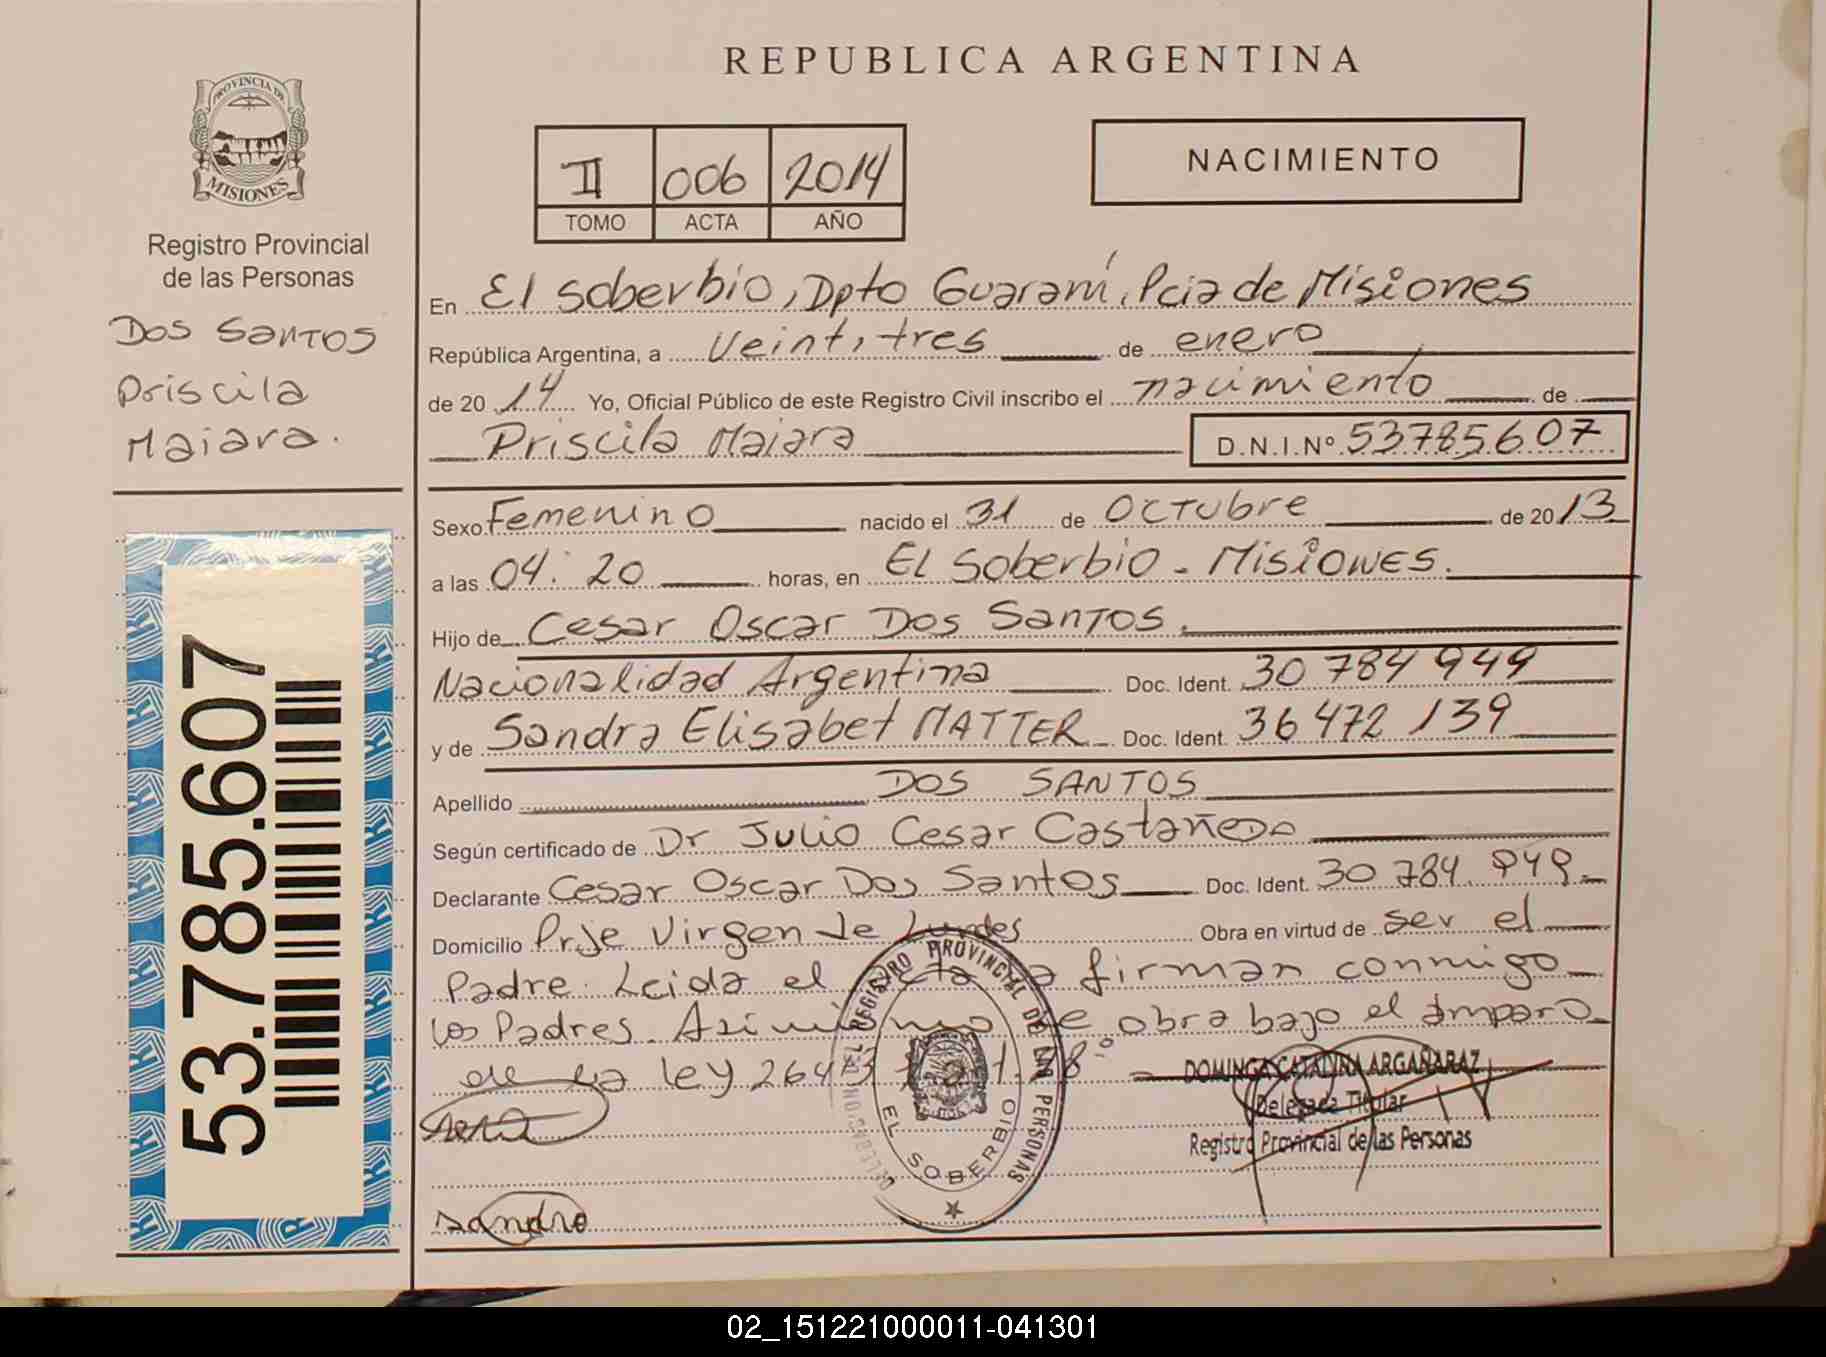 REPUBLICA ARGENTINA
PROVINCIA DE
MISIONES
Registro Provincial
de las Personas
DOS SANTOS
Priscila
Maiara.
53.785.607
II 006 2014
TOMO ACTA AÑO
NACIMIENTO
En El Soberbio, Dpto Guaraní, Pcia de Misiones
República Argentina, a Veintitres de enero
de 2014 Yo, Oficial Público de este Registro Civil inscribo el nacimiento de
Priscila Maiara D.N.I.Nº 53785607
Sexo Femenino nacido el 31 de Octubre de 2013
a las 04:20 horas, en El Soberbio - Misiones.
Hijo de Cesar Oscar Dos Santos.
Nacionalidad Argentina Doc. Ident. 30 784 949
y de Sandra Elisabet MATTER Doc. Ident. 36 472 139
Apellido DOS SANTOS
Según certificado de Dr Julio Cesar Castañeda
Declarante Cesar Oscar Dos Santos Doc. Ident. 30 784 949
Domicilio Prje Virgen de Lurdes Obra en virtud de ser el
Padre. Leida el acta la firman conmigo
los Padres. Asimismo se obra bajo el amparo
de la ley 26413 Art. 28º
DOMINGA CATALINA ARGAÑARAZ
Delegada Titular
Registro Provincial de las Personas
DELEGACION DEL REGISTRO PROVINCIAL DE LAS PERSONAS
EL SOBERBIO
Sandra
02_151221000011-041301